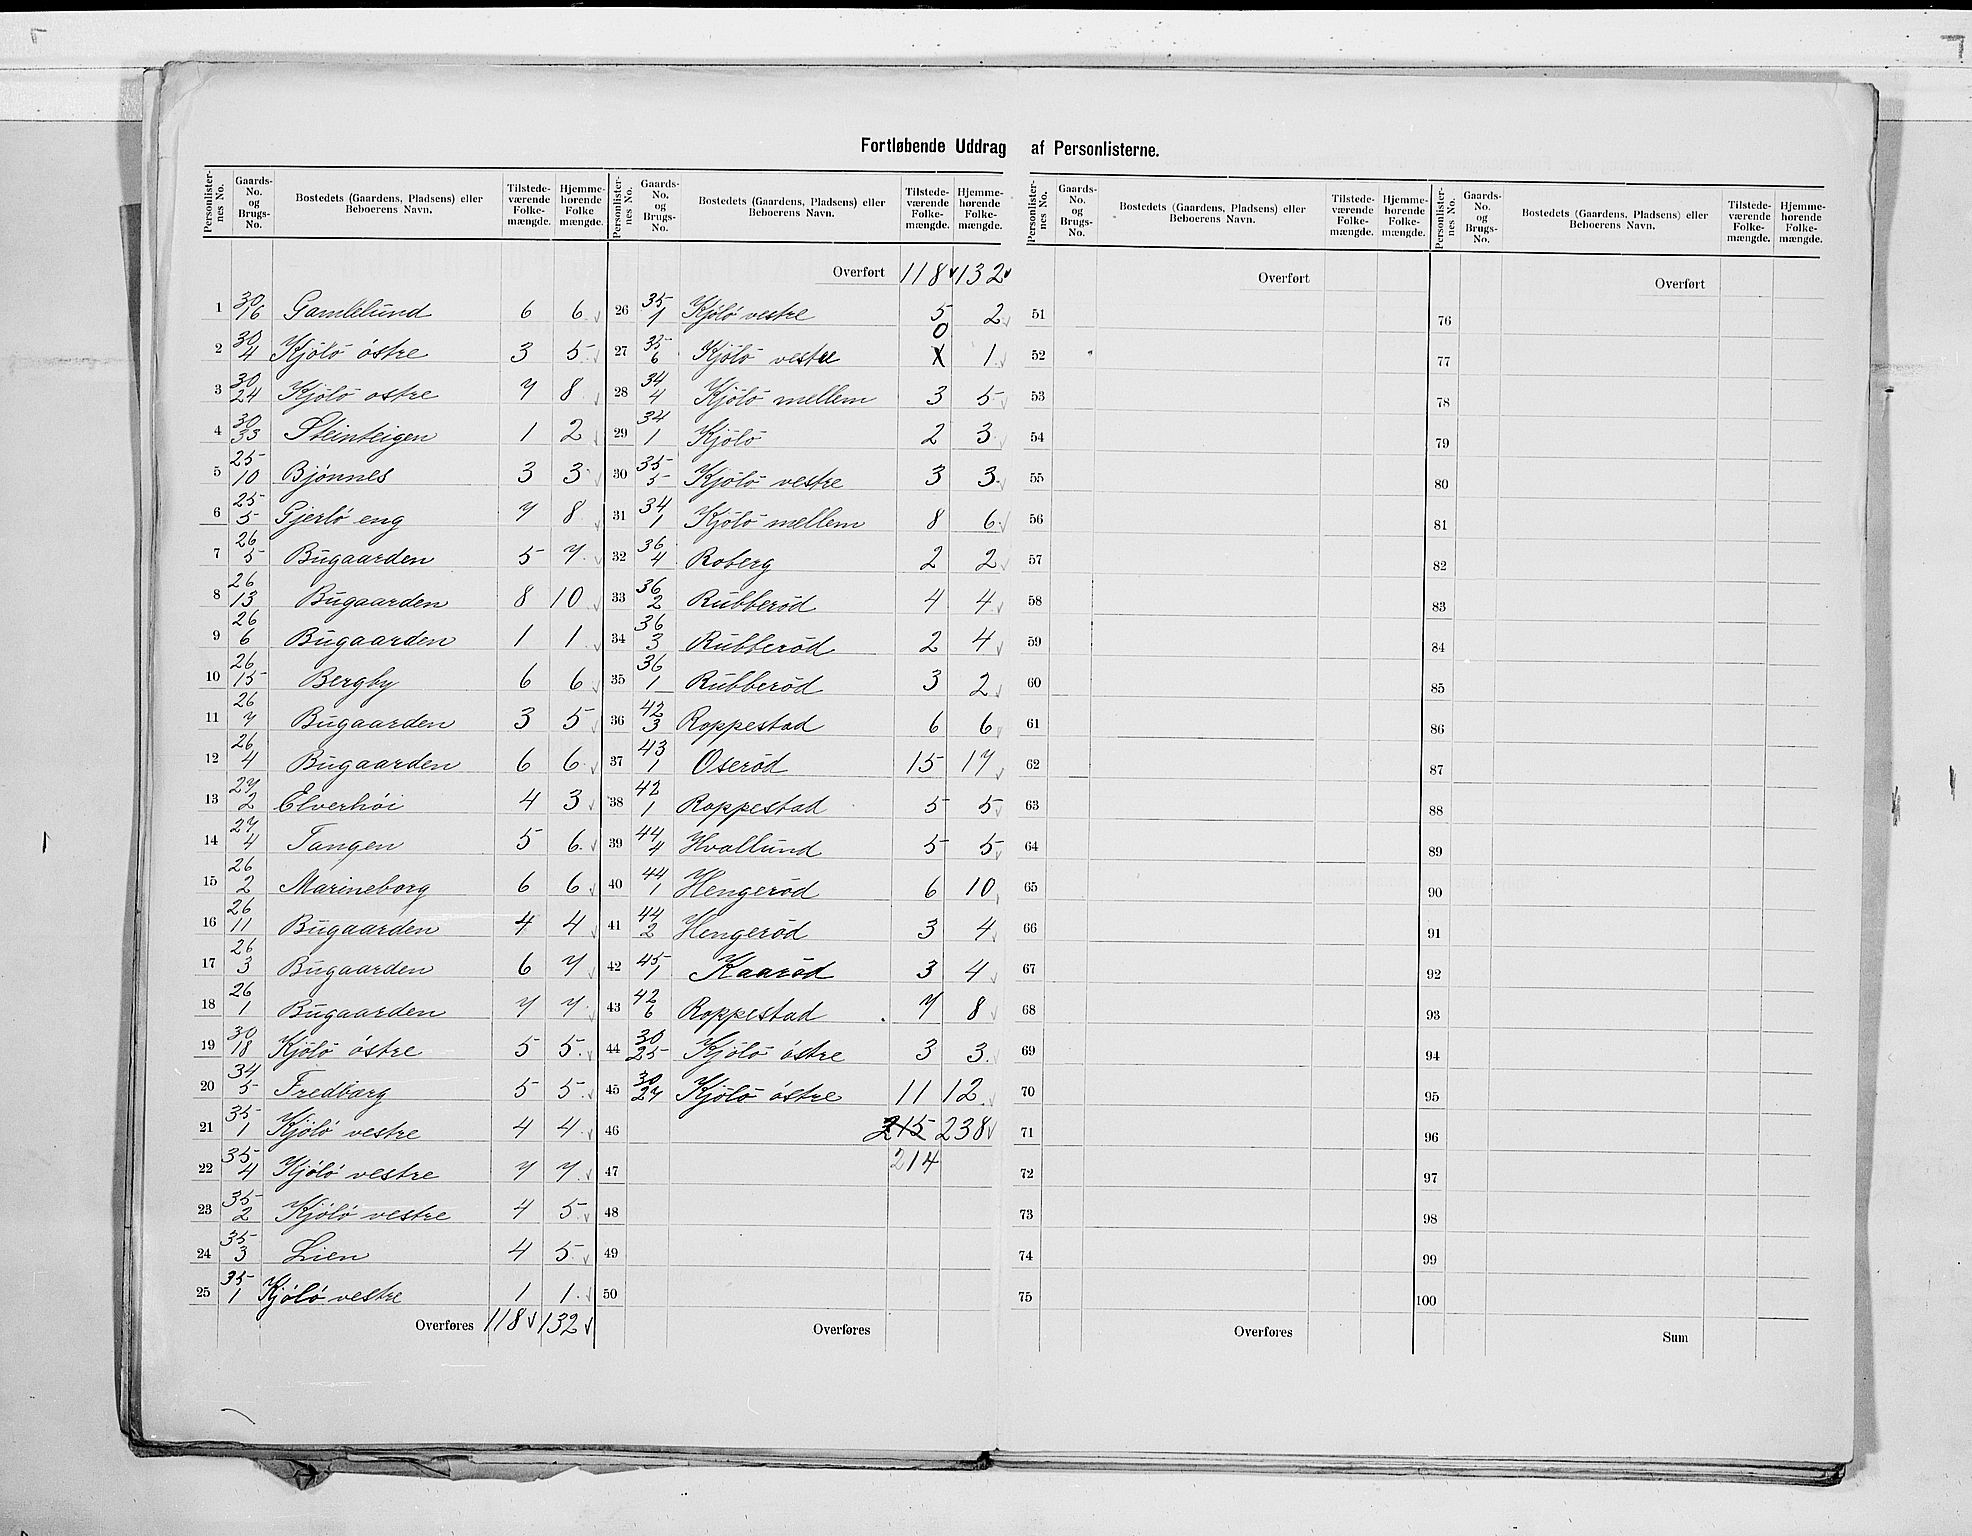 Fortløbende Uddrag af Personlisterne.
Personlisternes No. | Gaards-No. og Brugs-No. | Bostedets (Gaardens, Pladsens) eller Beboerens Navn. | Tilstedeværende Folkemængde. | Hjemmehørende Folkemængde.
1 | 30/16 | Gamlelund | 6 | 6 ✓
2 | 30/4 | Kjölö östre | 3 | 5 ✓
3 | 30/24 | Kjölö ostre | 7 | 8 ✓
4 | 30/33 | Steinteigen | 1 | 2 ✓
5 | 25/10 | Bjönnes | 3 | 3 ✓
6 | 25/5 | Gjerlö eng | 7 | 8 ✓
7 | 26/5 | Bugaarden | 5 | 7 ✓
8 | 26/13 | Bugaarden | 8 | 10 ✓
9 | 26/6 | Bugaarden | 1 | 1 ✓
10 | 26/15 | Bergby | 6 | 6 ✓
11 | 26/7 | Bugaarden | 3 | 5 ✓
12 | 26/4 | Bugaarden | 6 | 6 ✓
13 | 27/2 | Elverhöi | 4 | 3 ✓
14 | 27/4 | Tangen | 5 | 6 ✓
15 | 26/2 | Marineborg | 6 | 6 ✓
16 | 26/11 | Bugaarden | 4 | 4 ✓
17 | 26/3 | Bugaarden | 6 | 7 ✓
18 | 26/1 | Bugaarden | 7 | 7 ✓
19 | 30/18 | Kjölö östre | 5 | 5 ✓
20 | 34/5 | Fredborg | 5 | 5 ✓
21 | 35/1 | Kjölö vestre | 4 | 4 ✓
22 | 35/4 | Kjölö vestre | 7 | 7 ✓
23 | 35/2 | Kjölö vestre | 4 | 5 ✓
24 | 35/3 | Lien | 4 | 5 ✓
25 | 35/1 | Kjölö vestre | 1 | 1 ✓
Overføres | 118 ✓ | 132 ✓
Personlisternes No. | Gaards-No. og Brugs-No. | Bostedets (Gaardens, Pladsens) eller Beboerens Navn. | Tilstedeværende Folkemængde. | Hjemmehørende Folkemængde.
Overført | 118 ✓ | 132 ✓
26 | 35/1 | Kjölö vestre | 5 | 2 ✓
27 | 35/6 | Kjölö vestre | 0 | 1 ✓
28 | 34/4 | Kjölö mellem | 3 | 5 ✓
29 | 34/1 | Kjölö | 2 | 3 ✓
30 | 35/5 | Kjölö vestre | 3 | 3 ✓
31 | 34/1 | Kjölö mellem | 8 | 6 ✓
32 | 36/4 | Roberg | 2 | 2 ✓
33 | 36/2 | Rubberöd | 4 | 4 ✓
34 | 36/3 | Rubberöd | 2 | 4 ✓
35 | 36/1 | Rubberöd | 3 | 2 ✓
36 | 42/3 | Roppestad | 6 | 6 ✓
37 | 43/1 | Oseröd | 15 | 17 ✓
38 | 42/1 | Roppestad | 5 | 5 ✓
39 | 44/4 | Hvallund | 5 | 5 ✓
40 | 44/1 | Hengeröd | 6 | 10
41 | 44/2 | Hengeröd | 3 | 4 ✓
42 | 45/1 | Kaaröd | 3 | 4 ✓
43 | 42/6 | Roppestad | 7 | 8 ✓
44 | 30/25 | Kjölö östre | 3 | 3 ✓
45 | 30/27 | Kjölö östre | 11 | 12 ✓
46 | 215 | 238 ✓
47 | 214
48
49
50
Overføres
Personlisternes No. | Gaards-No. og Brugs-No. | Bostedets (Gaardens, Pladsens) eller Beboerens Navn. | Tilstedeværende Folkemængde. | Hjemmehørende Folkemængde.
Overført
51
52
53
54
55
56
57
58
59
60
61
62
63
64
65
66
67
68
69
70
71
72
73
74
75
Overføres
Personlisternes No. | Gaards-No. og Brugs-No. | Bostedets (Gaardens, Pladsens) eller Beboerens Navn. | Tilstedeværende Folkemængde. | Hjemmehørende Folkemængde.
Overført
76
77
78
79
80
81
82
83
84
85
86
87
88
89
90
91
92
93
94
95
96
97
98
99
100
Sum